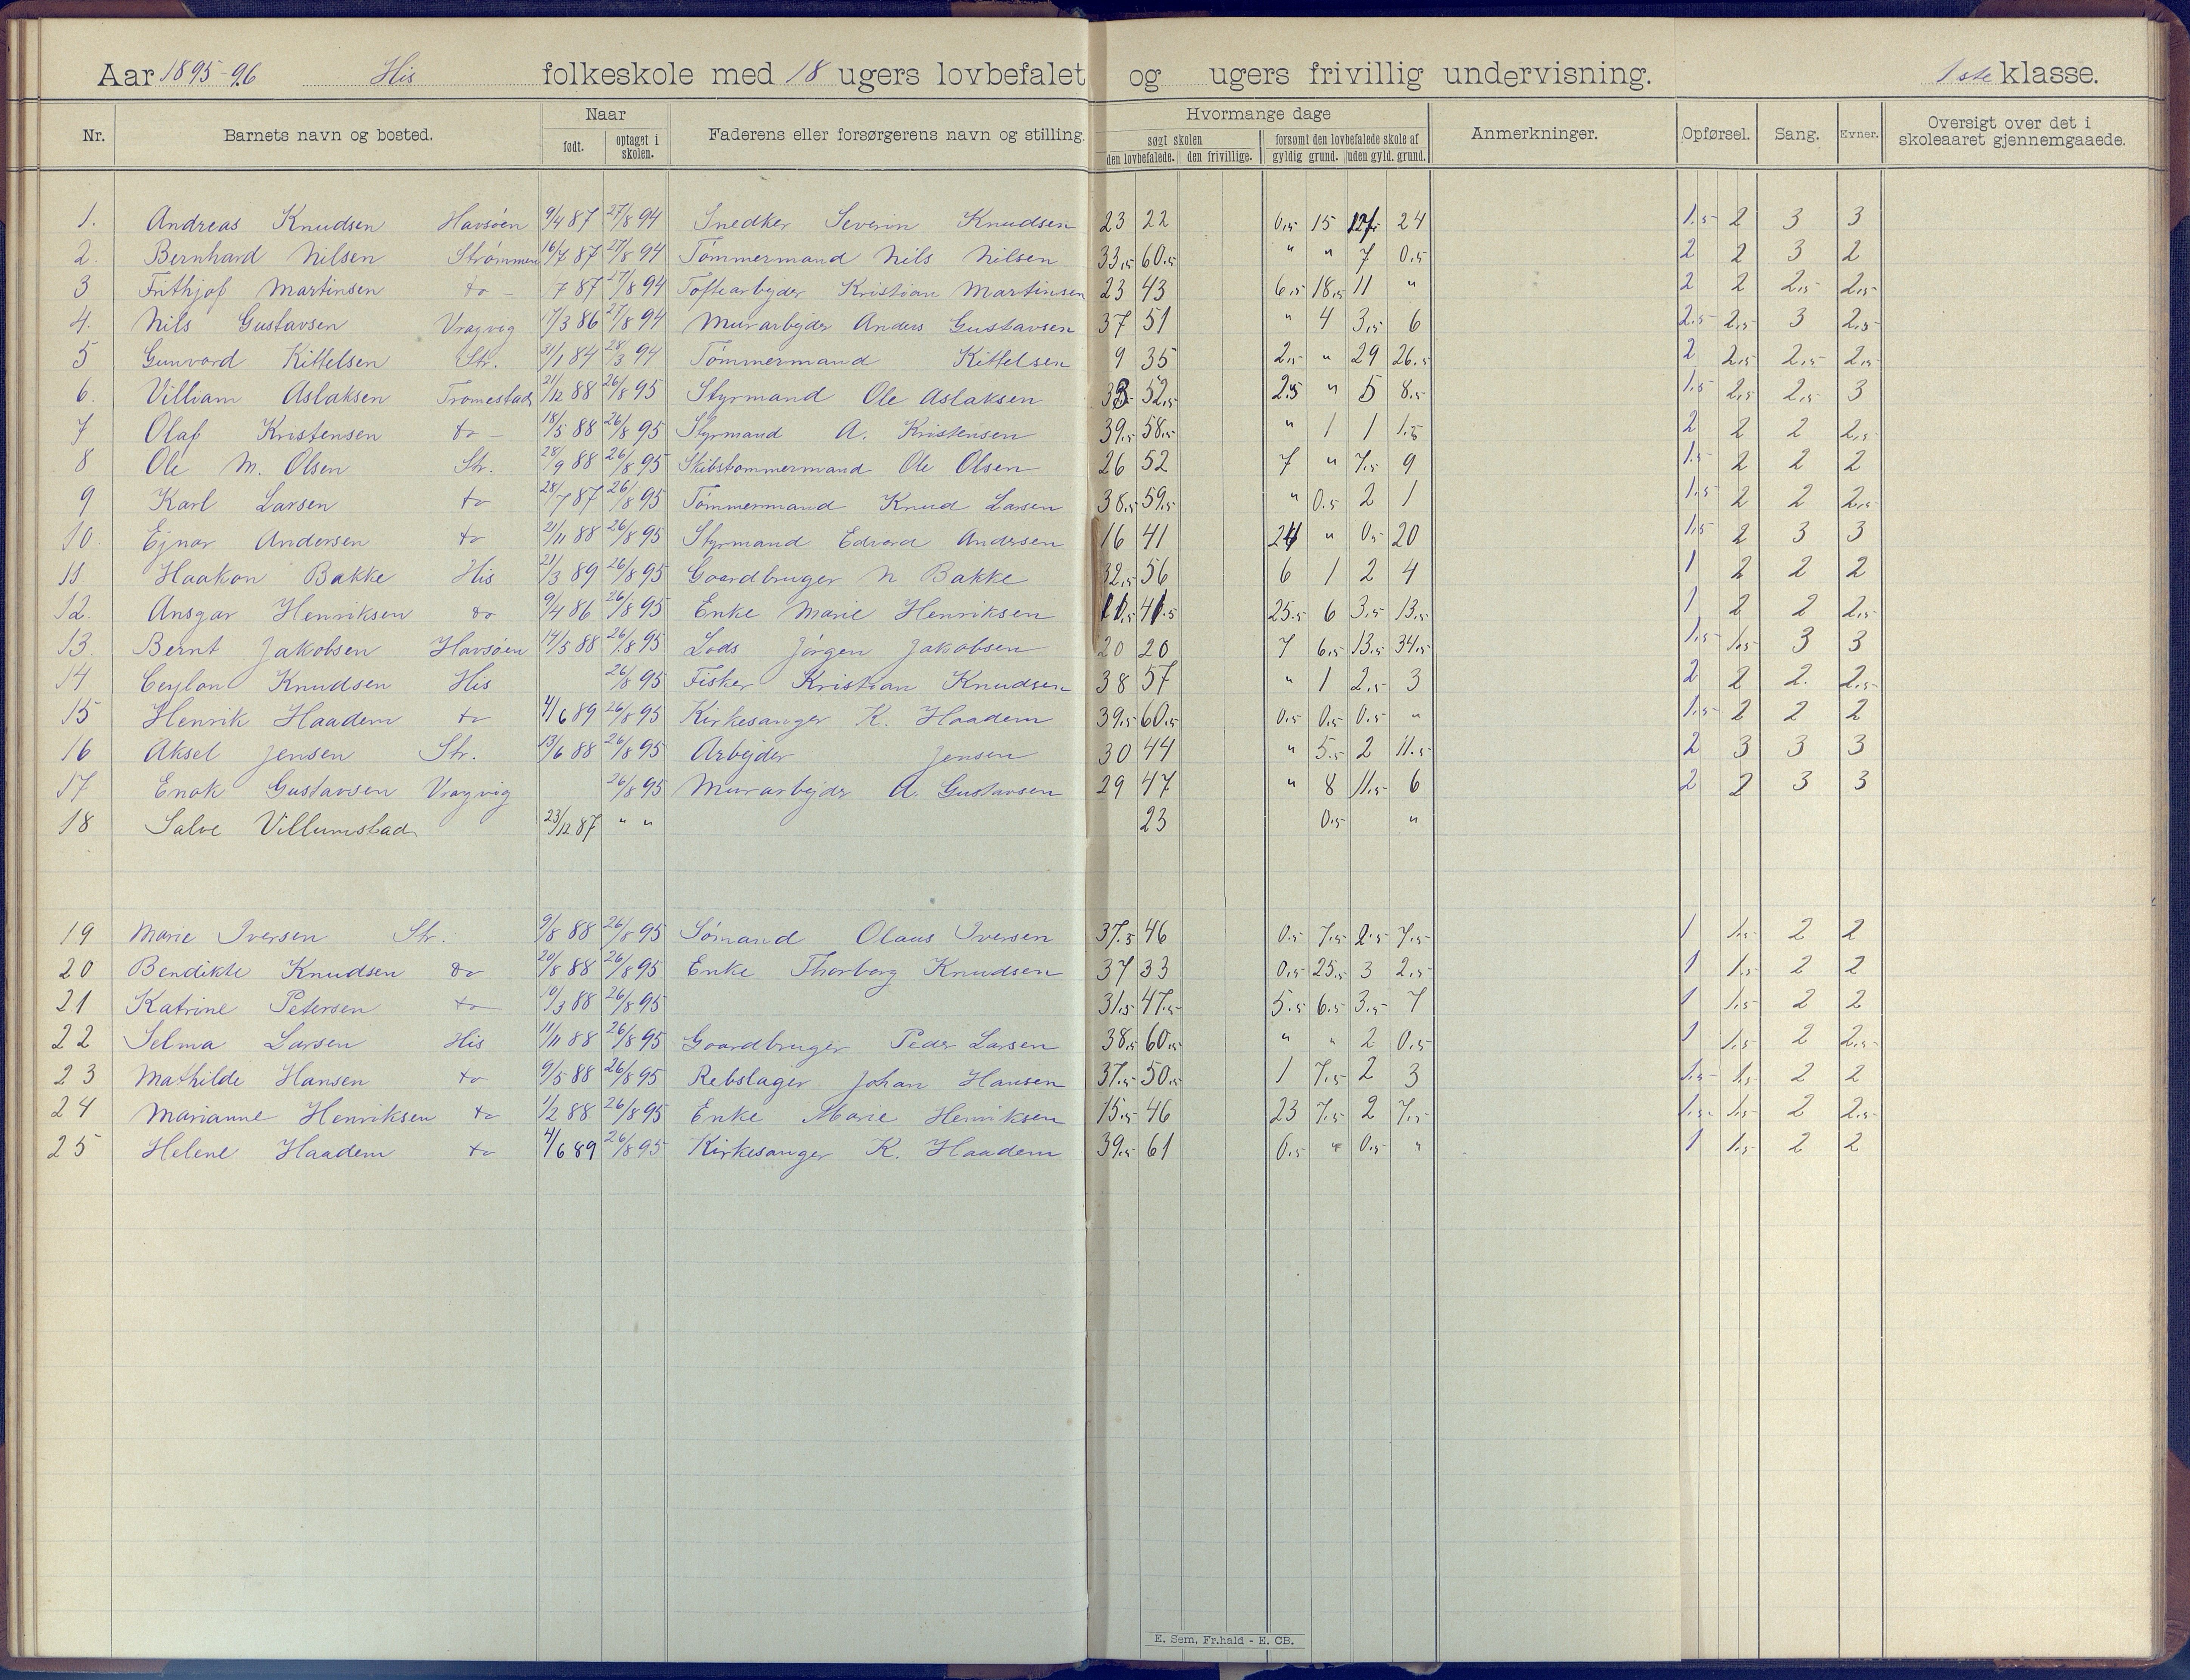 Aar 1895-96 His folkeskole med 18 ugers lovbefalet og ugers frivillig undervisning. 1ste klasse.
Nr. Barnets navn og bosted. Naar født. optaget i skolen. Faderens eller forsørgerens navn og stilling. Hvormange dage søgt skolen den lovbefalede. den frivillige. forsømt den lovbefalede skole af gyldig grund. uden gyld. grund. Anmerkninger. Opførsel. Sang. Evner. Oversigt over det i skoleaaret gjennemgaaede.
1. Andreas Knudsen Havsøen 9/4 87 27/8 94 Snedker Severin Knudsen 23 22 0.5 15 24 1.5 2 3 3
2. Bernhard Nilsen Strømmen 16/7 87 27/8 94 Tømmermand Nils Nilsen 33.5 60.5 " " 7 0.5 2 2 3 2
3 Frithjof Martinsen do - 7 87 27/8 94 Toftearbejder Kristian Martinsen 23 43 6.5 18.5 11 " 2 2 2.5 2.5
4. Nils Gustavsen Vragvig 17/3 86 27/8 94 Murarbejder Anders Gustavsen 37 51 " 4 3.5 6 2.5 2.5 3 2.5
5 Gunvord Kittelsen Str. 31/1 84 28/3 94 Tømmermand Kittelsen 9 35 2.5 " 29 26.5 2 2.5 2.5 2.5
6. Villiam Aslaksen Tromestad 21/12 88 26/8 95 Styrmand Ole Aslaksen 33 52.5 2.5 " 5 8.5 1.5 2.5 2.5 3
7 Olaf Kristensen do - 18/5 88 26/8 95 Styrmand A. Kristensen 39.5 58.5 " 1 1 1.5 2 2 2 2.5
8 Ole M. Olsen Str. 28/9 88 26/8 95 Skibstømmermand Ole Olsen 26 52 7 " 7.5 9 1.5 2 2 2
9 Karl Larsen do 28/7 87 26/8 95 Tømmermand Knud Larsen 38.5 59.5 " 0.5 2 1 1.5 2 2 2.5
10. Ejnar Andersen do 21/11 88 26/8 95 Styrmand Edvard Andersen 16 41 24 " 0.5 20 1.5 2 3 3
11 Haakon Bakke His 21/3 89 26/8 95 Gaardbruger N Bakke 32.5 56 6 1 2 4 1 2 2 2
12. Ansgar Henriksen do 9/4 86 26/8 95 Enke Marie Henriksen 11.5 41.5 25.5 6 3.5 13.5 1 2 2 2.5
13. Bernt Jakobsen Havsøen 14/5 88 26/8 95 Lods Jørgen Jakobsen 20 20 7 6.5 13.5 34.5 1.5 1.5 3 3
14 Ceylon Knudsen His 26/8 95 Fisker Kristian Knudsen 38 57 " 1 2.5 3 2 2 2. 2.5
15 Henrik Haadem do 4/6 89 26/8 95 Kirkesanger K. Haadem 39.5 60.5 0.5 0.5 0.5 " 1.5 2 2 2
16 Aksel Jensen Str. 13/6 88 26/8 95 Arbejder Jensen 30 44 " 5.5 2 11.5 2 3 3 3
17 Enok Gustavsen Vragvig 26/8 95 Murarbejder A. Gustavsen 29 47 " 8 11.5 6 2 2 3 3
18 Salve Villumstad 23/12 87 " " 23 0.5 "
19 Marie Iversen Str. 9/8 88 26/8 95 Sømand Olaus Iversen 37.5 46 0.5 7.5 2.5 7.5 1 1.5 2 2
20 Bendikte Knudsen do 20/8 88 26/8 95 Enke Thorborg Knudsen 37 33 0.5 25.5 3 2.5 1 1.5 2 2
21 Katrine Petersen do 10/3 88 26/8 95 31.5 47.5 5.5 6.5 3.5 7 1 1.5 2 2
22 Selma Larsen His 11/11 88 26/8 95 Gaardbruger Peder Larsen 38.5 60.5 " " 2 0.5 1 1.5 2 2.5
23 Mathilde Hansen do 9/5 88 26/8 95 Rebslager Johan Hansen 37.5 50.5 1 7.5 2 3 1.5 1.5 2 2
24 Marianne Henriksen do 1/2 88 26/8 95 Enke Marie Henriksen 15.5 46 23 7.5 2 7.5 1.5 1.5 2 2.5
25 Helene Haadem do 4/6 89 26/8 95 Kirkesanger K. Haadem 39.5 61 0.5 " 0.5 " 1 1.5 2 2
E. Sem, Fr.hald - E. CB.